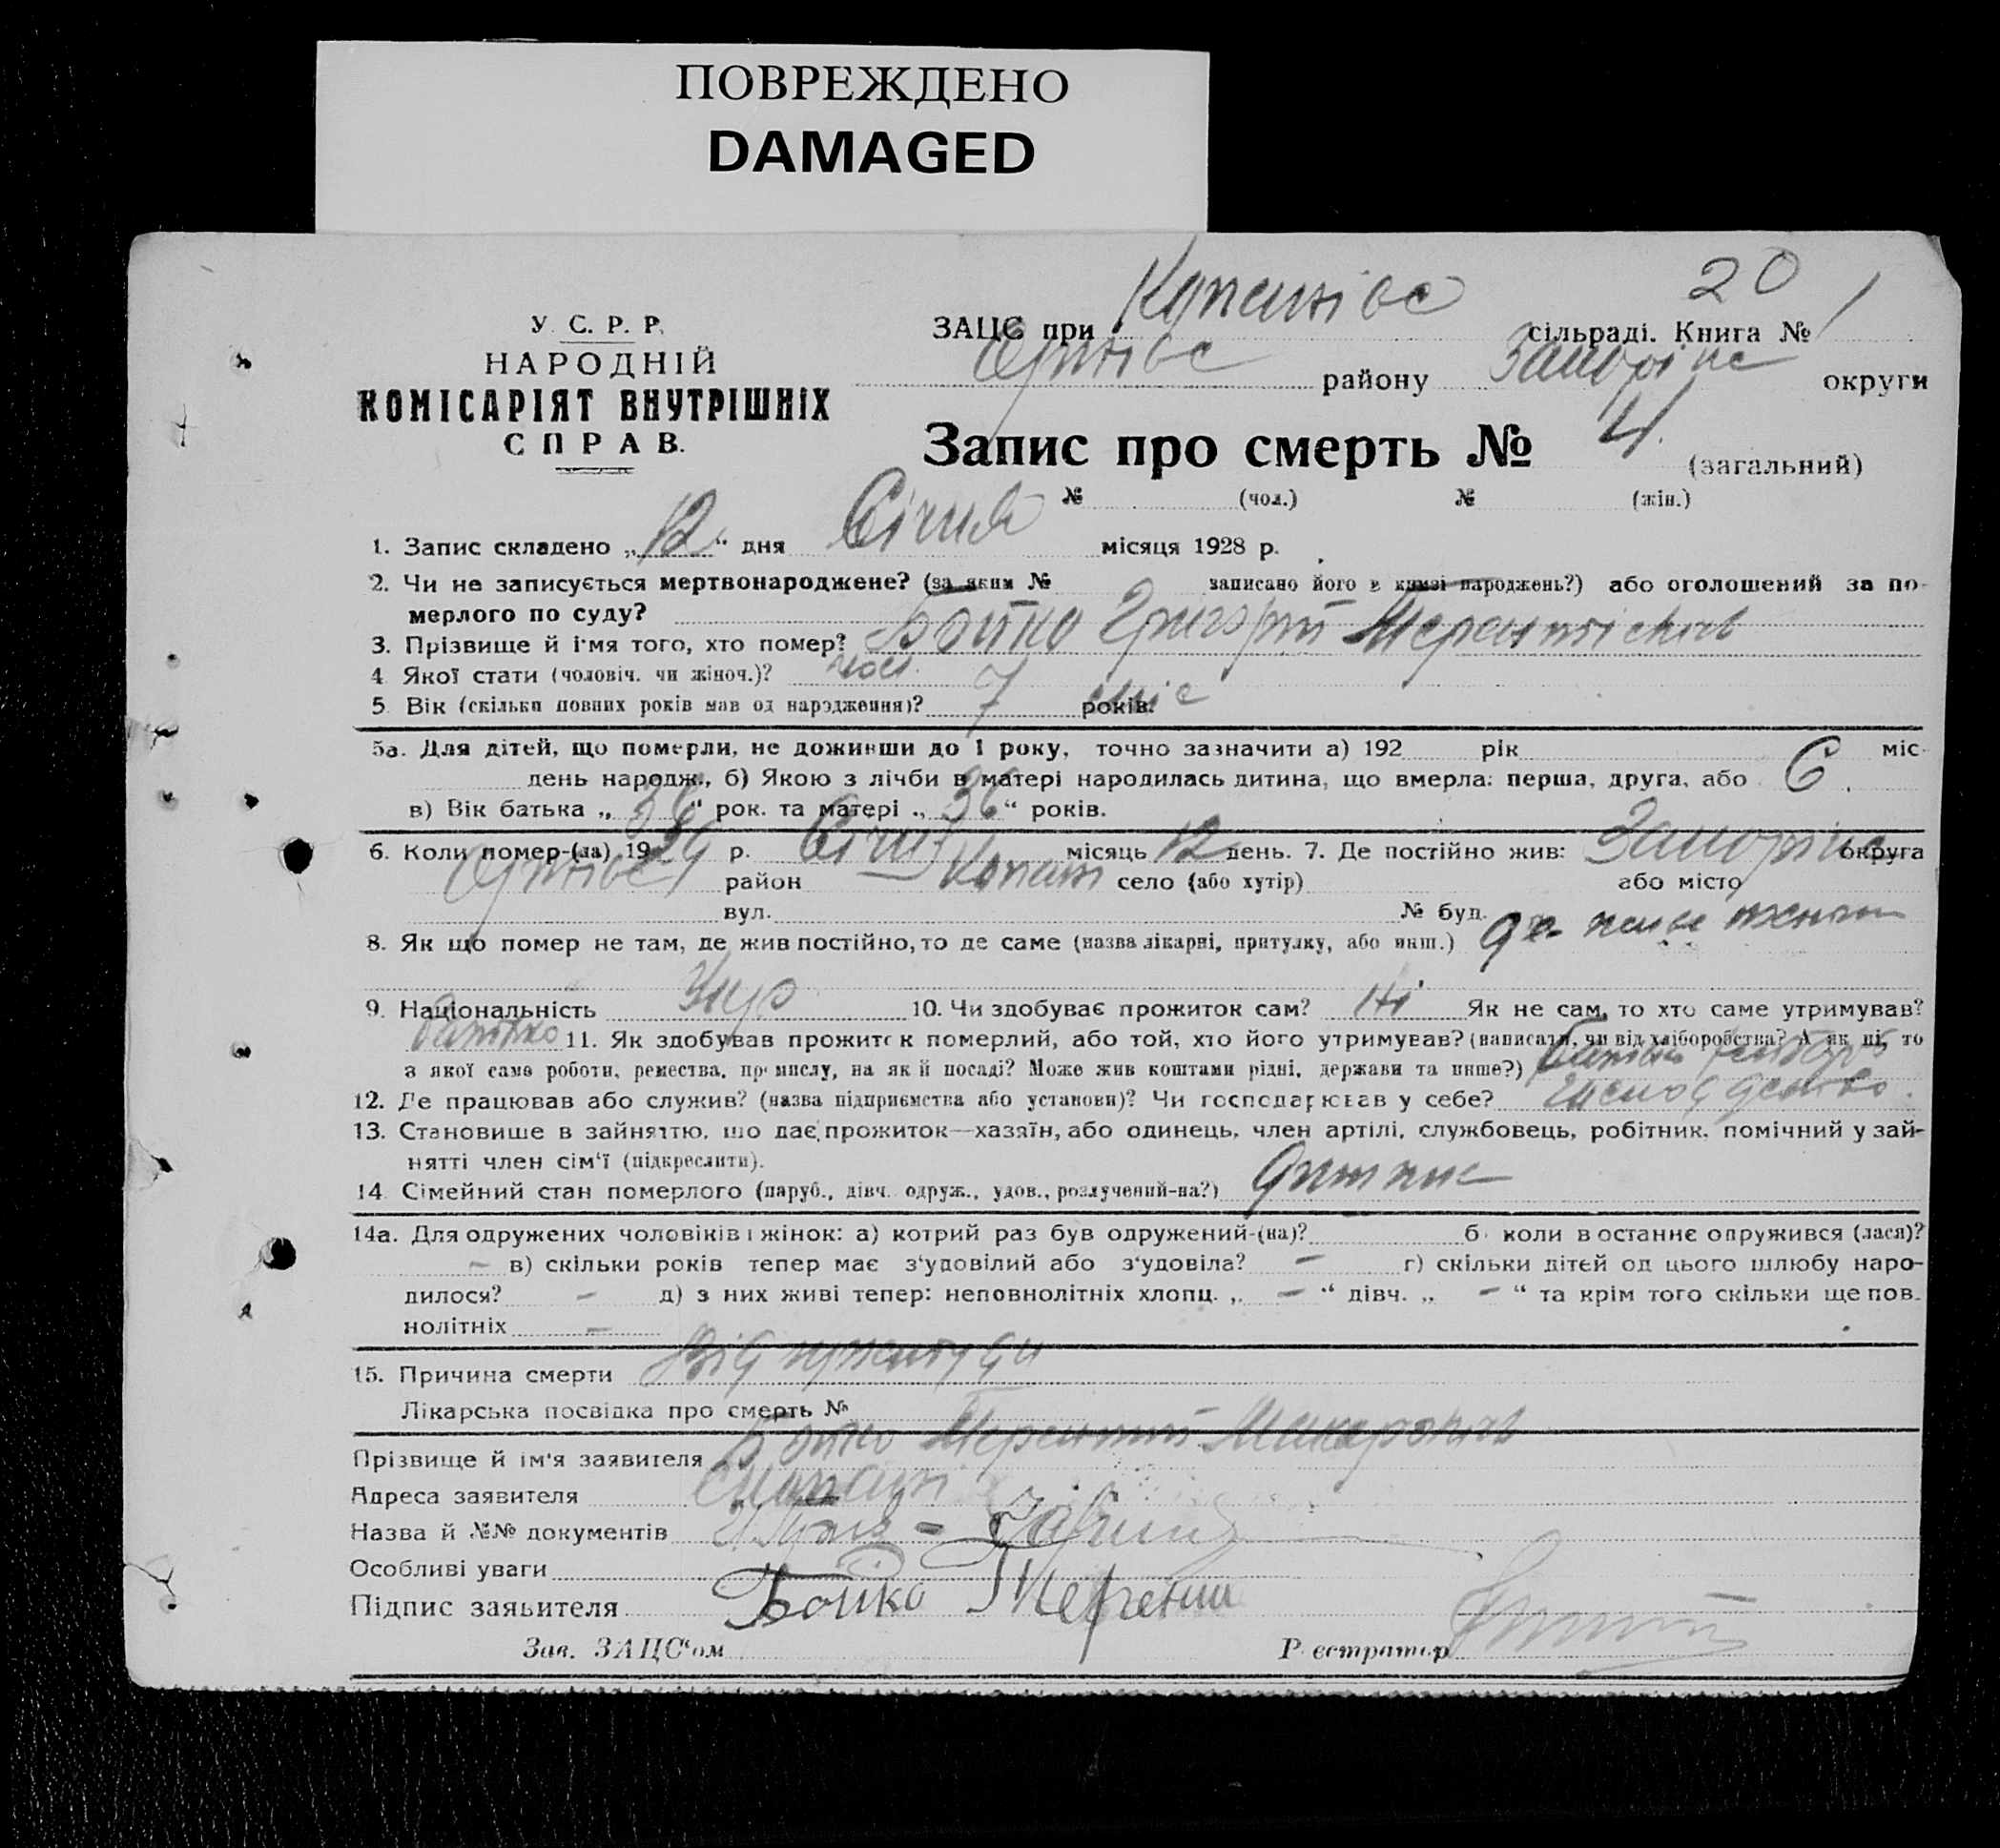 ПОВРЕЖДЕНО
DAMAGED
20
У. С. Р. Р.
НАРОДНІЙ
КОМІСАРІЯТ ВНУТРІШНІХ
СПРАВ.
ЗАЦС при сільраді. Книга № 1
району округи
Запис про смерть № 4. (загальний)
№ (чол.) № (жін.)
1. Запис складено „12“ дня Січня місяця 1928 р.
2. Чи не записується мертвонароджене? (за яким № записано його в книзі народжень?) або оголошений за по-
мерлого по суду?
3. Прізвище й ім'я того, хто помер? Бойко Григорій Терентієвич
4. Якої стати (чоловіч. чи жіноч.)? чол.
5. Вік (скільки повних років мав од народження)? 7 років.
5а. Для дітей, що померли, не доживши до 1 року, точно зазначити а) 192 рік міс.
день народж., б) Якою з лічби в матері народилась дитина, що вмерла: перша, друга, або 6.
в) Вік батька „36“ рок. та матері „36“ років.
6. Коли помер-(ла) 1929 р. Січня місяць 12 день. 7. Де постійно жив: округа
район Копані село (або хутір) або місто
вул. № буд.
8. Як що помер не там, де жив постійно, то де саме (назва лікарні, притулку, або инш.)
9. Національність Укр 10. Чи здобуває прожиток сам? Ні Як не сам, то хто саме утримував?
Батько 11. Як здобував прожиток померлий, або той, хто його утримував? (написати, чи від хліборобства? А як ні, то
з якої саме роботи, ремества, промислу, на якій посаді? Може жив коштами рідні, держави та инше?)
12. Де працював або служив? (назва підприємства або установи)? Чи господарював у себе?
13. Становише в зайняттю, що дає прожиток—хазяїн, або одинець, член артілі, службовець, робітник, помічний у зай-
нятті член сім'ї (підкреслити).
14. Сімейний стан померлого (паруб., дівч. одруж., удов., розлучений-на?)
14а. Для одружених чоловіків і жінок: а) котрий раз був одружений-(на)? б) коли в останнє одружився (лася)?
– в) скільки років тепер має з'удовілий або з'удовіла? – г) скільки дітей од цього шлюбу наро-
дилося? – д) з них живі тепер: неповнолітніх хлопц. „ – “ дівч. „ – “ та крім того скільки ще пов-
нолітніх –
15. Причина смерти Від простуди
Лікарська посвідка про смерть №
Прізвище й ім'я заявителя Бойко Терентій Макарович
Адреса заявителя
Назва й №№ документів
Особливі уваги
Підпис заявителя Бойко Терентий
Зав. ЗАЦС'ом Реєстратор